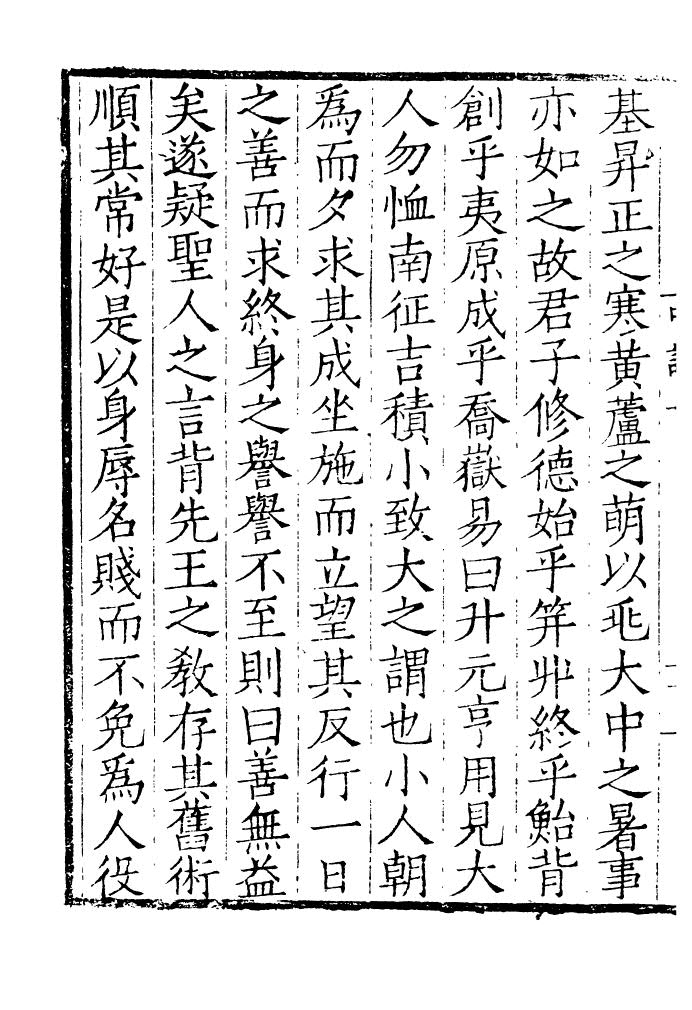 基昇正之寒黄蘆之萌以兆大中之暑事
亦如之故君子修德始乎笄丱終乎鮐背
創乎夷原成乎喬嶽易曰升元亨用見大
人勿恤南征吉積小致大之謂也小人朝
爲而夕求其成坐施而立望其反行一日
之善而求終身之譽譽不至則曰善無益
矣遂疑聖人之言背先王之教存其舊術
順其常好是以身辱名賤而不免爲人役